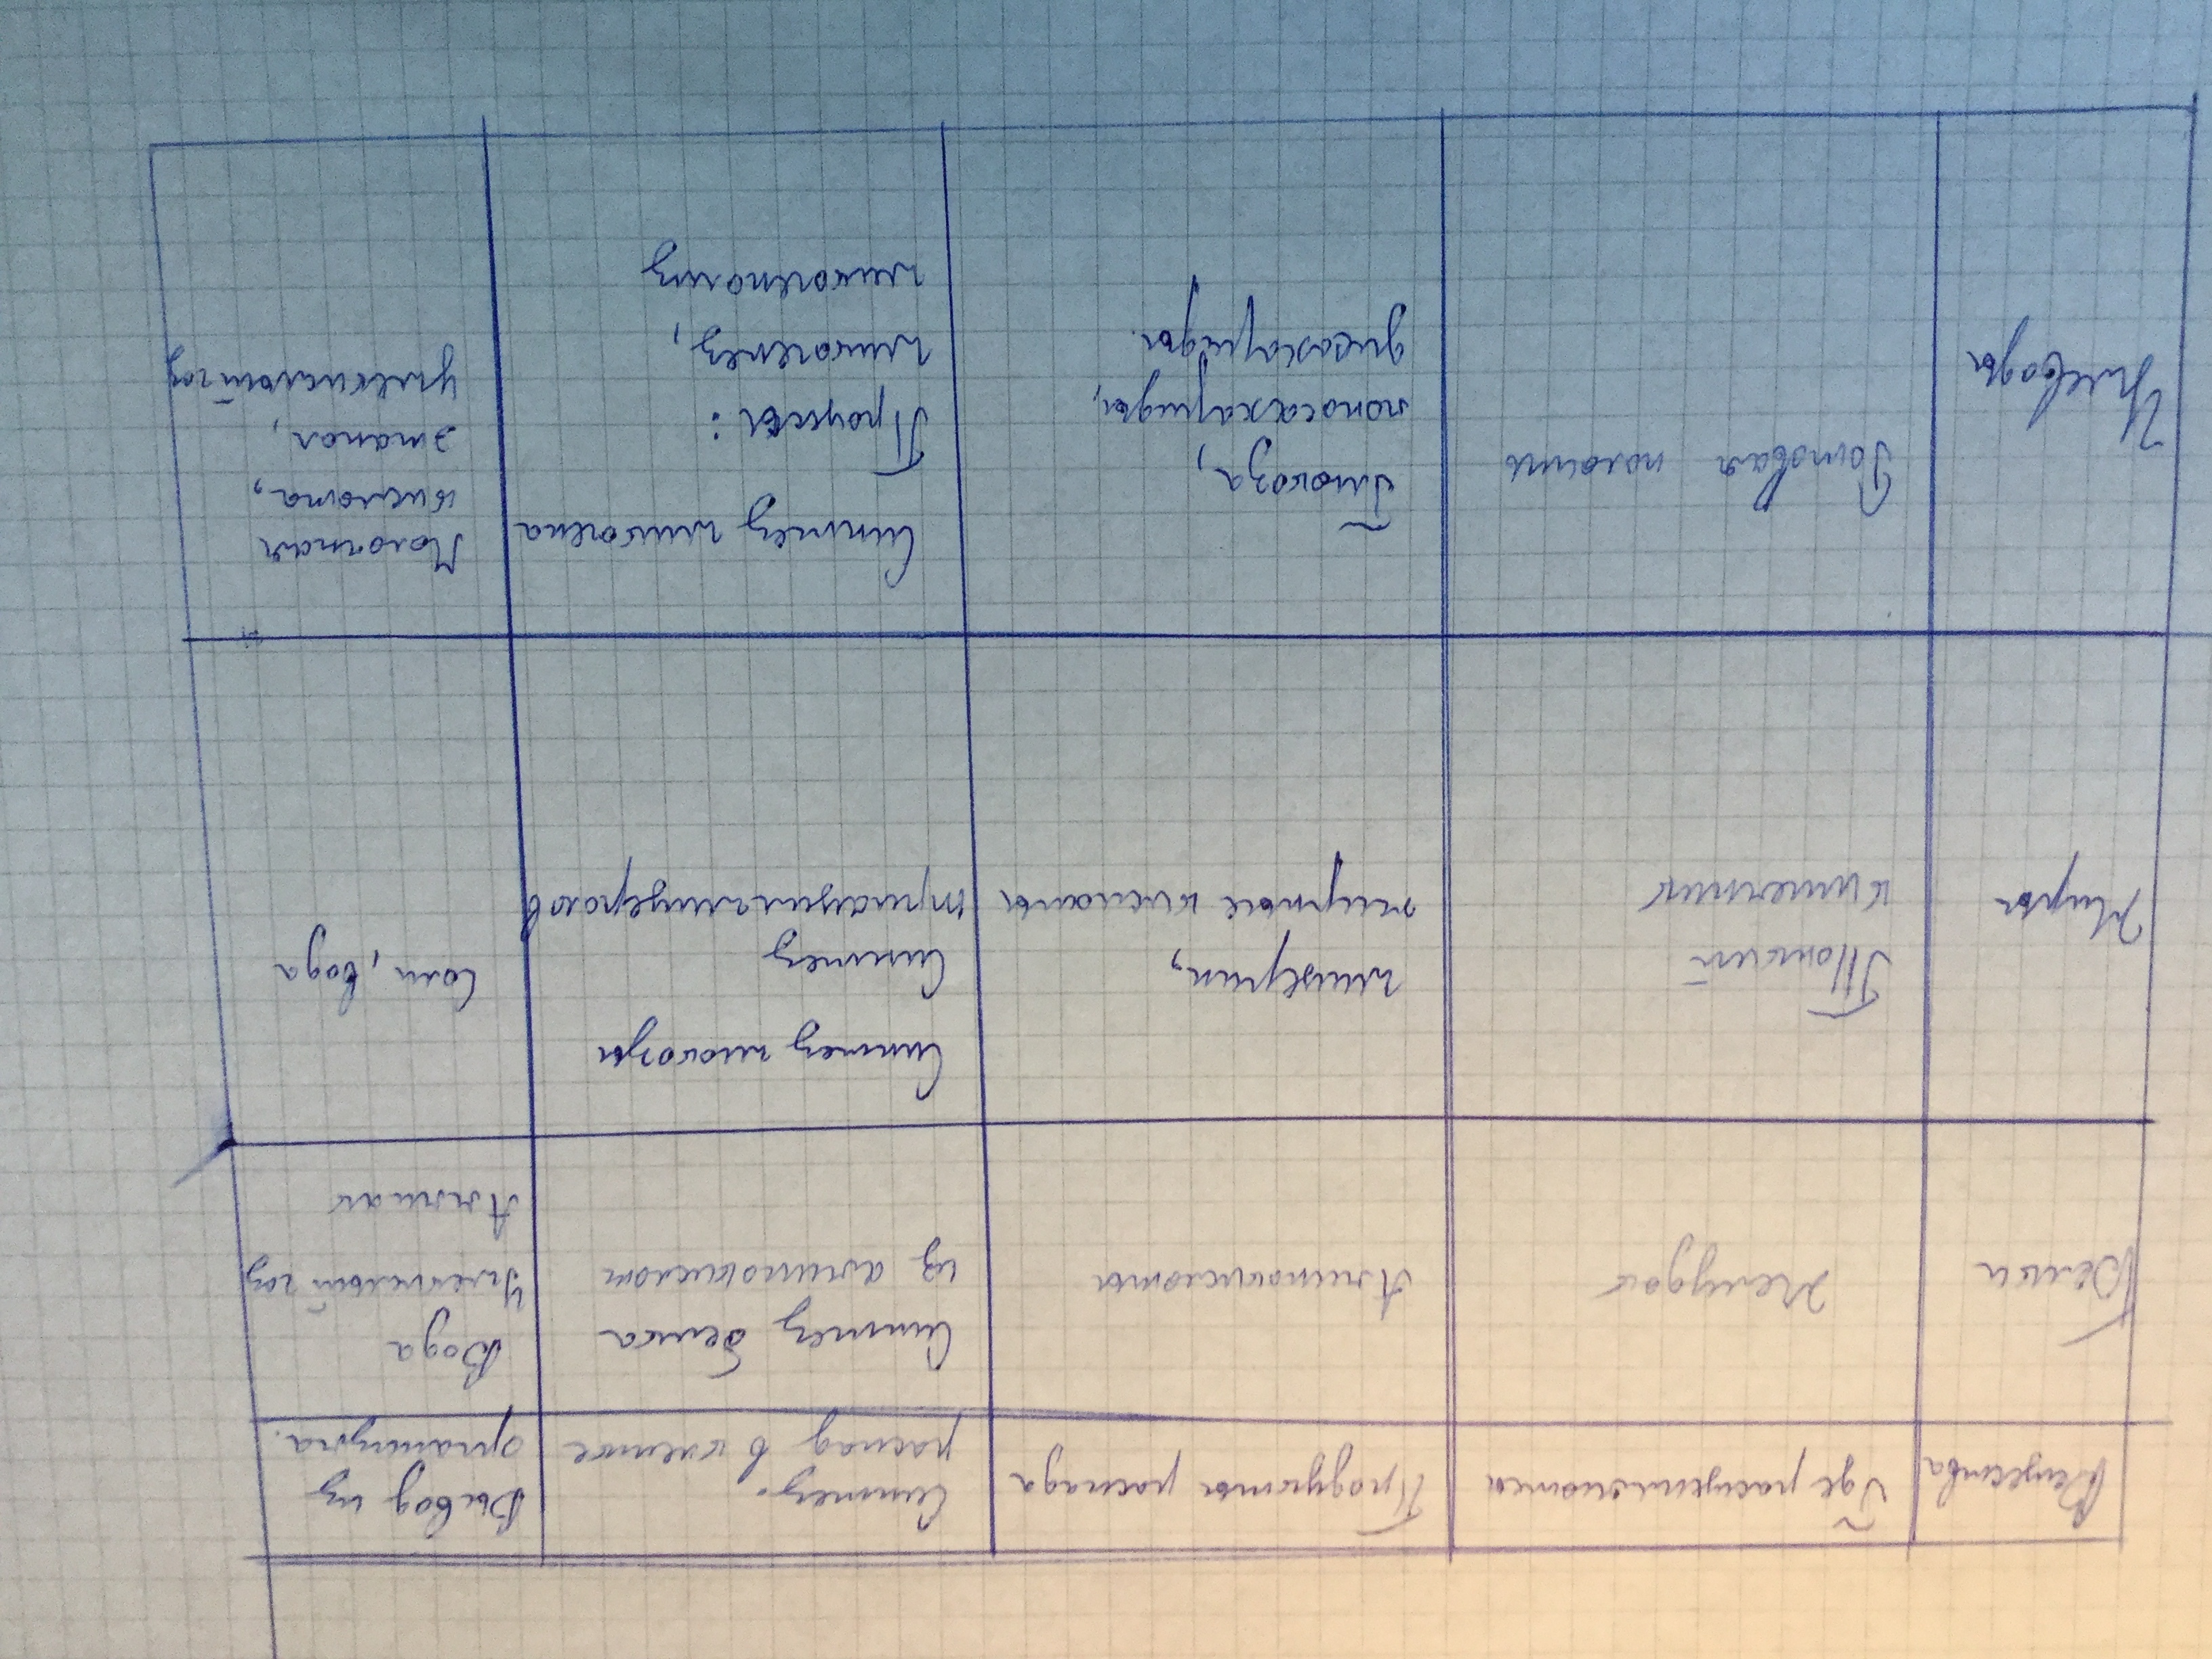 Вещества
Где расщепляются
Продукты распада
Синтез.
распад в клетке
Вывод из
организма.
Белки
Желудок
Аминокислоты
Синтез белка
из аминокислот
Вода
Углекислый газ
Аммиак
Жиры
Тонкий
кишечник
глицерин,
жирные кислоты
Синтез глюкозы
Синтез
триацилглицеролов
Соли, вода
Углеводы
Ротовая полость
Глюкоза,
моносахариды,
дисахариды.
Синтез гликогена
Процессы:
гликогенез,
гликогенолиз
Молочная
кислота,
этанол,
углекислый газ